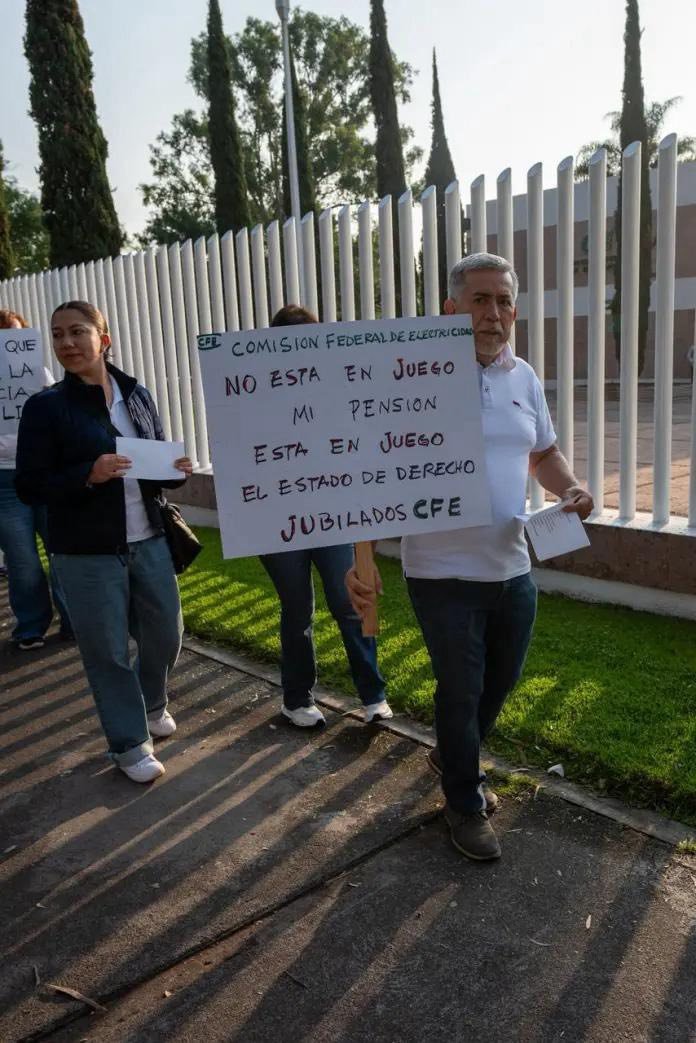 QUE
LA
CFE COMISION FEDERAL DE ELECTRICIDAD
NO ESTA EN JUEGO
MI PENSION
ESTA EN JUEGO
EL ESTADO DE DERECHO
JUBILADOS CFE